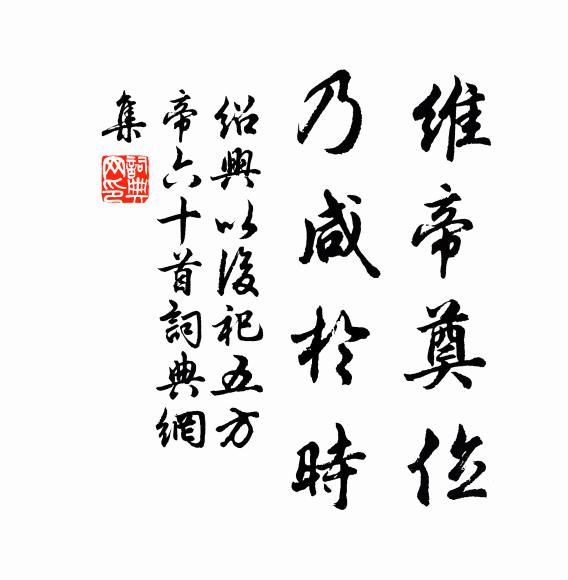 維帝奠位
乃咸於時
紹興以後祀五方
帝六十首詞典網
集
詞典網印